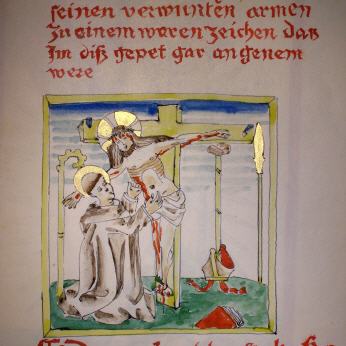 seinen verwunten armen
Zu einem waren zeichen das
Im diß gepet gar angenem
were